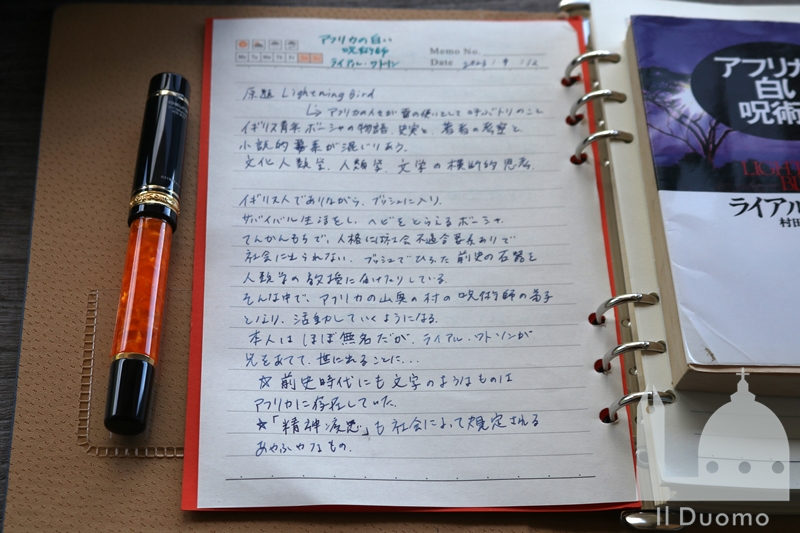 アフリカの白い
呪術師
ライアル・ワトソン
Memo No.
Date 2023 / 9 / 12
Mo Tu We Th Fr Sa Su
原題 Lightning Bird
↳ アフリカの人々が雷の使いとして
イギリス青年ボーシャの物語。史実と、著者の考察と
小説的要素が混じりあう。
文化人類学、人類学、文学の横断的思考。
イギリス人でありながら、ブッシュに入り、
サバイバル生活をし、ヘビをとらえるボーシャ。
てんかんもちで、人格に 社会不適合 ありで
社会に出られない。ブッシュでひろった前史の石器を
人類学の教授に届けたりしている。
そんな中で、アフリカの山奥の村の呪術師の弟子
となり、活動していくようになる。
本人はほぼ無名だが、ライアル・ワトソンが
光をあてて、世に出ることに...
☆前史時代にも文字のようなものは
アフリカに存在していた。
☆「精神疾患」も社会によって規定される
あやふやなもの。
アフリカ
白い
呪術
LIGH
BI
ライアル
村田
Il Duomo